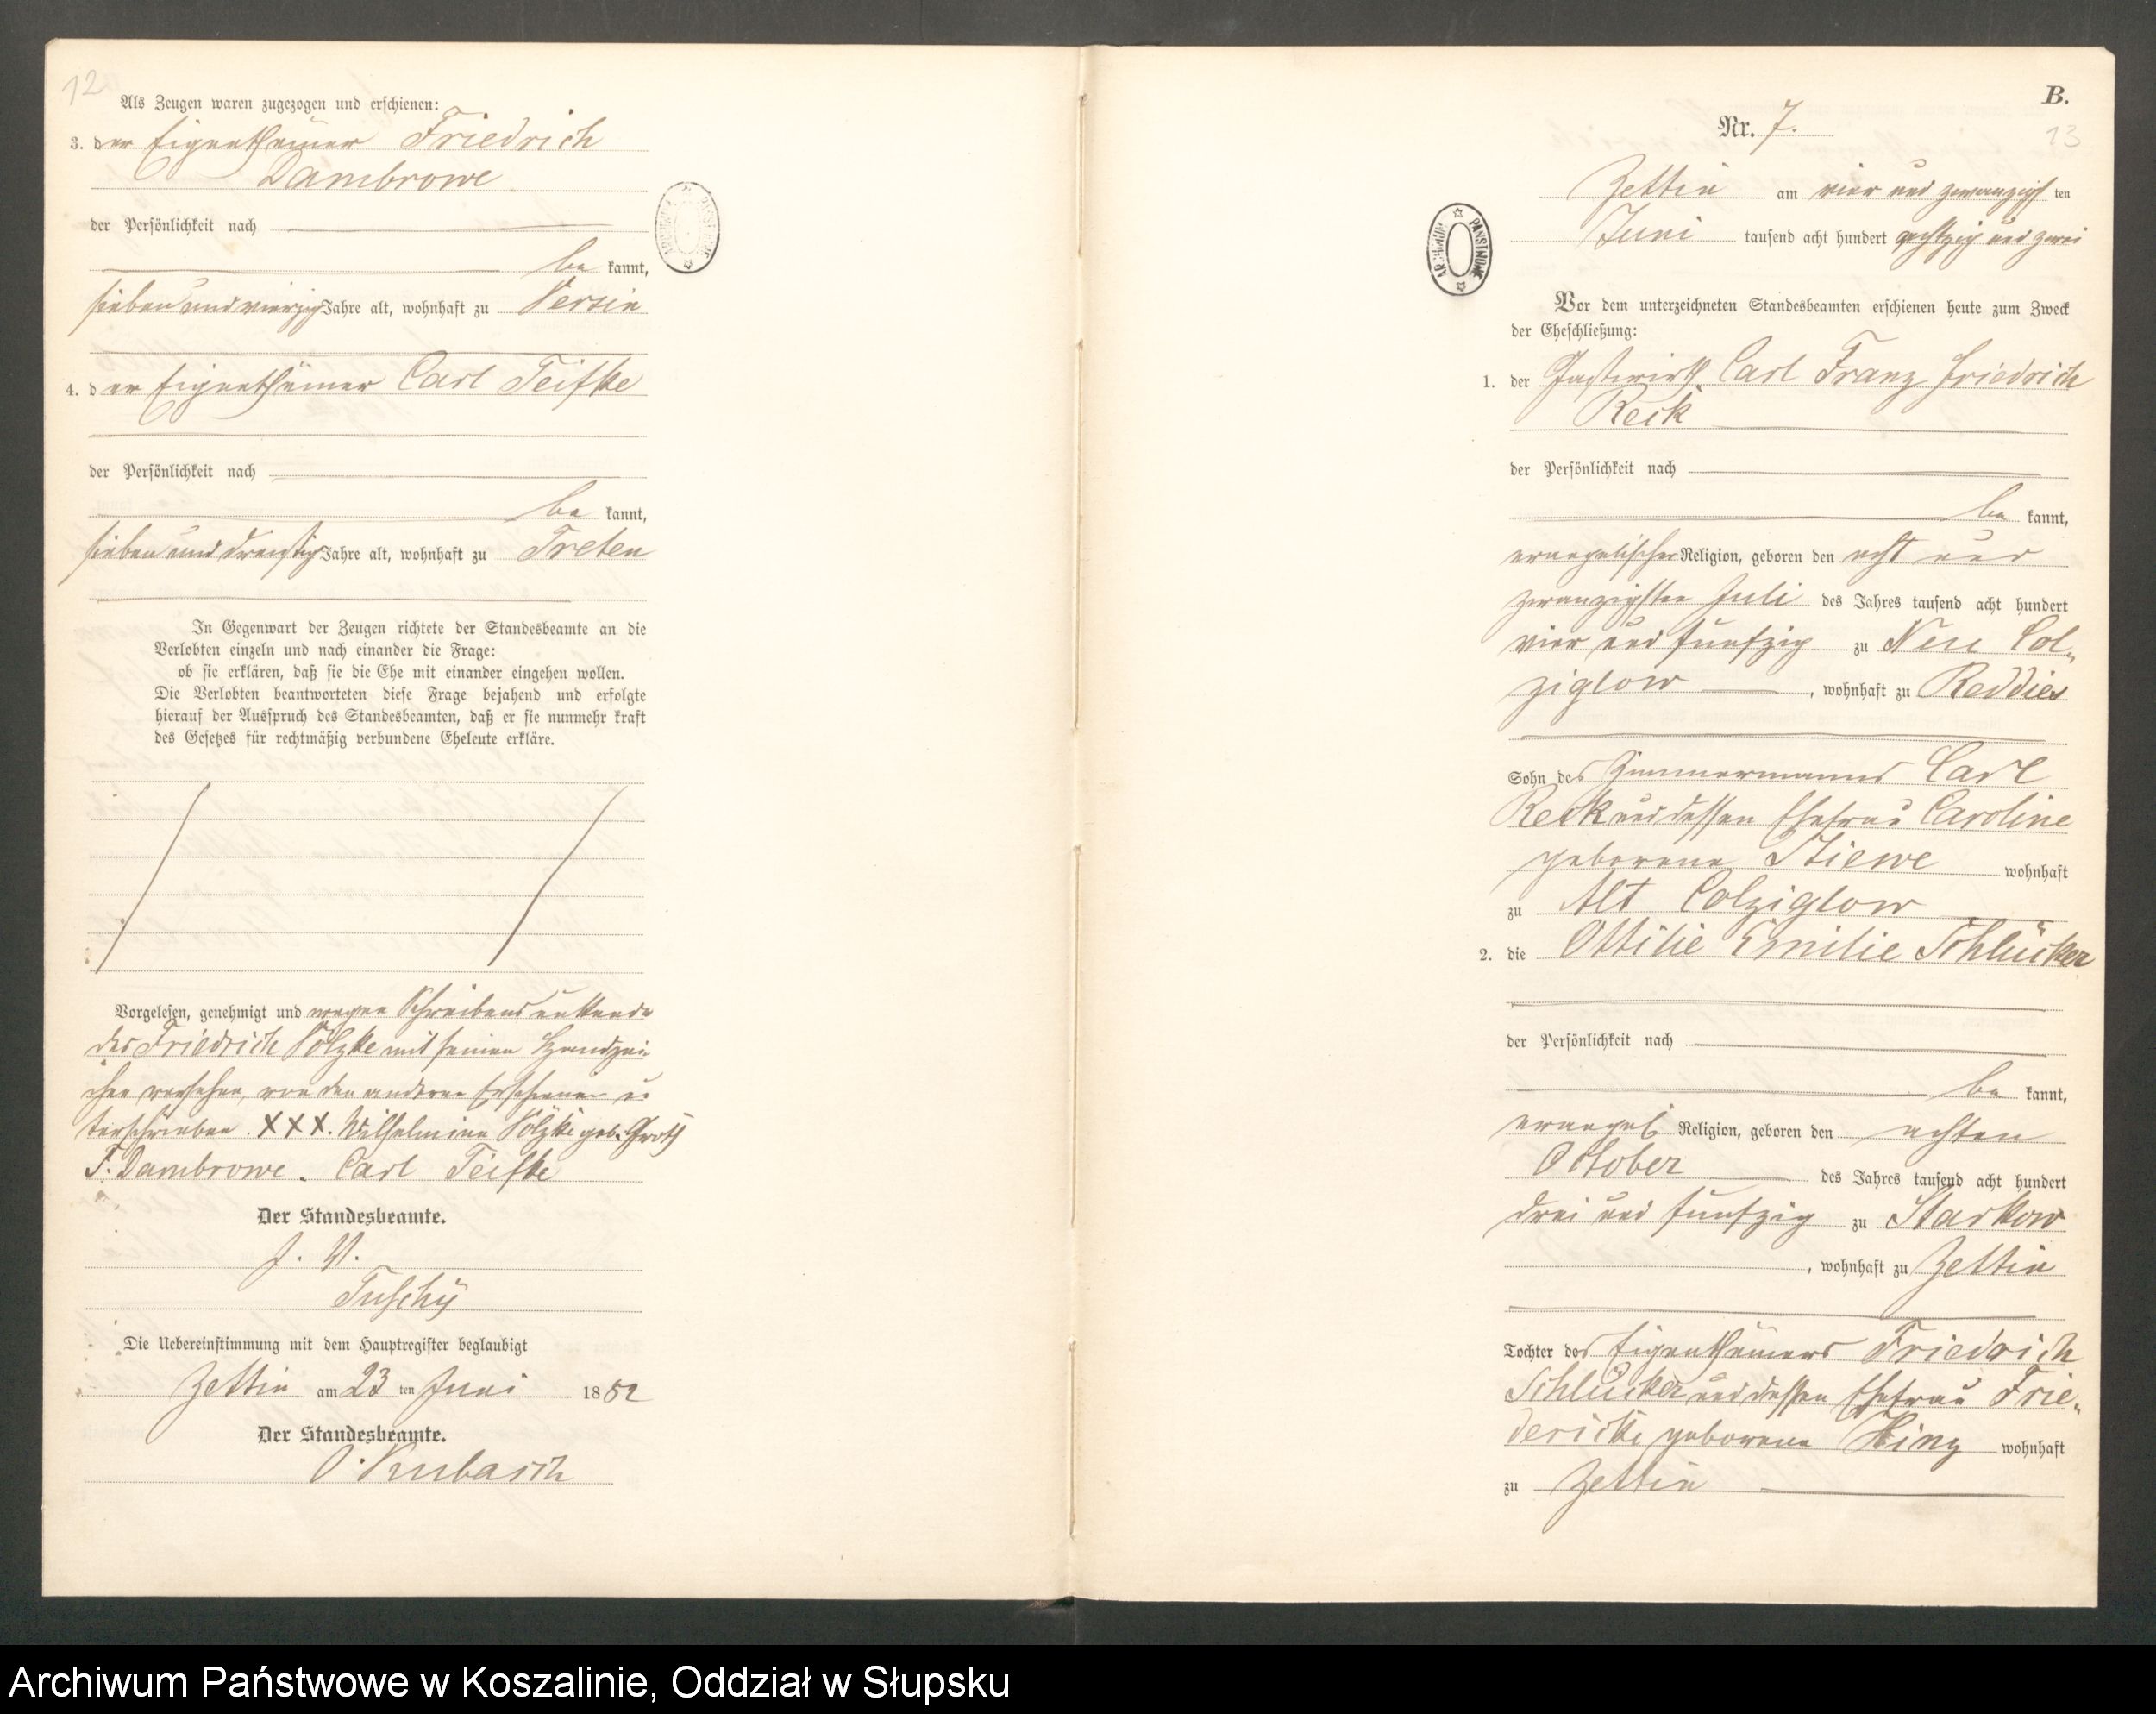 12
Als Zeugen waren zugezogen und erschienen:
3. der Eigenthümer Friedrich
Dambrowe
der Persönlichkeit nach
be kannt,
sieben und vierzig Jahre alt, wohnhaft zu Versin
4. der Eigenthümer Carl Teifke
der Persönlichkeit nach
be kannt,
sieben und dreißig Jahre alt, wohnhaft zu Treten
In Gegenwart der Zeugen richtete der Standesbeamte an die
Verlobten einzeln und nach einander die Frage:
ob sie erklären, daß sie die Ehe mit einander eingehen wollen.
Die Verlobten beantworteten diese Frage bejahend und erfolgte
hierauf der Ausspruch des Standesbeamten, daß er sie nunmehr kraft
des Gesetzes für rechtmäßig verbundene Eheleute erkläre.
Vorgelesen, genehmigt und wegen Schreibensunkunde
des Friedrich Völzke mit seinem Handzei-
chen versehen, von den anderen Erschienenen un
terschrieben. XXX. Wilhelmine Völzke geb. Groth
F. Dambrowe. Carl Teifke
Der Standesbeamte.
J. V.
Tuschÿ
Die Uebereinstimmung mit dem Hauptregister beglaubigt
Zettin am 23 ten Juni 1882
Der Standesbeamte.
O. Kubasch
ARCHIWUM PAŃSTWOWE
B.
13
Nr. 7.
Zettin am vier und zwanzigs ten
Juni tausend acht hundert achtzig und zwei
ARCHIWUM PAŃSTWOWE
Vor dem unterzeichneten Standesbeamten erschienen heute zum Zweck
der Eheschließung:
1. der Gastwirth Carl Franz Friedrich
Reck
der Persönlichkeit nach
be kannt,
evangelischer Religion, geboren den acht und
zwanzigsten Juli des Jahres tausend acht hundert
vier und fünfzig zu Neu Col-
ziglow, wohnhaft zu Reddies
Sohn des Zimmermanns Carl
Reck und dessen Ehefrau Caroline
geborene Stiewe wohnhaft
zu Alt Colziglow
2. die Ottilie Emilie Schlücker
der Persönlichkeit nach
be kannt,
evangel. Religion, geboren den achten
October des Jahres tausend acht hundert
drei und fünfzig zu Starkow
, wohnhaft zu Zettin
Tochter des Eigenthümers Friedrich
Schlücker und dessen Ehefrau Frie-
dericke geborene Hinz wohnhaft
zu Zettin
Archiwum Państwowe w Koszalinie, Oddział w Słupsku